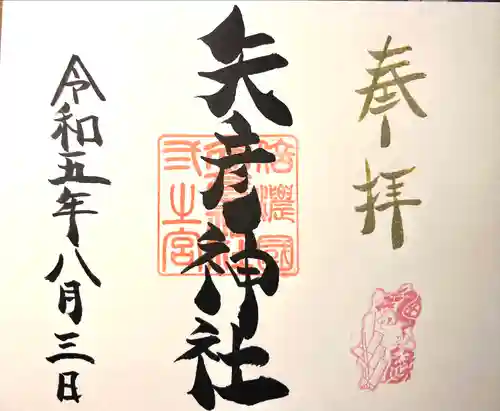 奉拝
矢彦神社
信濃國
弐之宮
令和五年八月三日